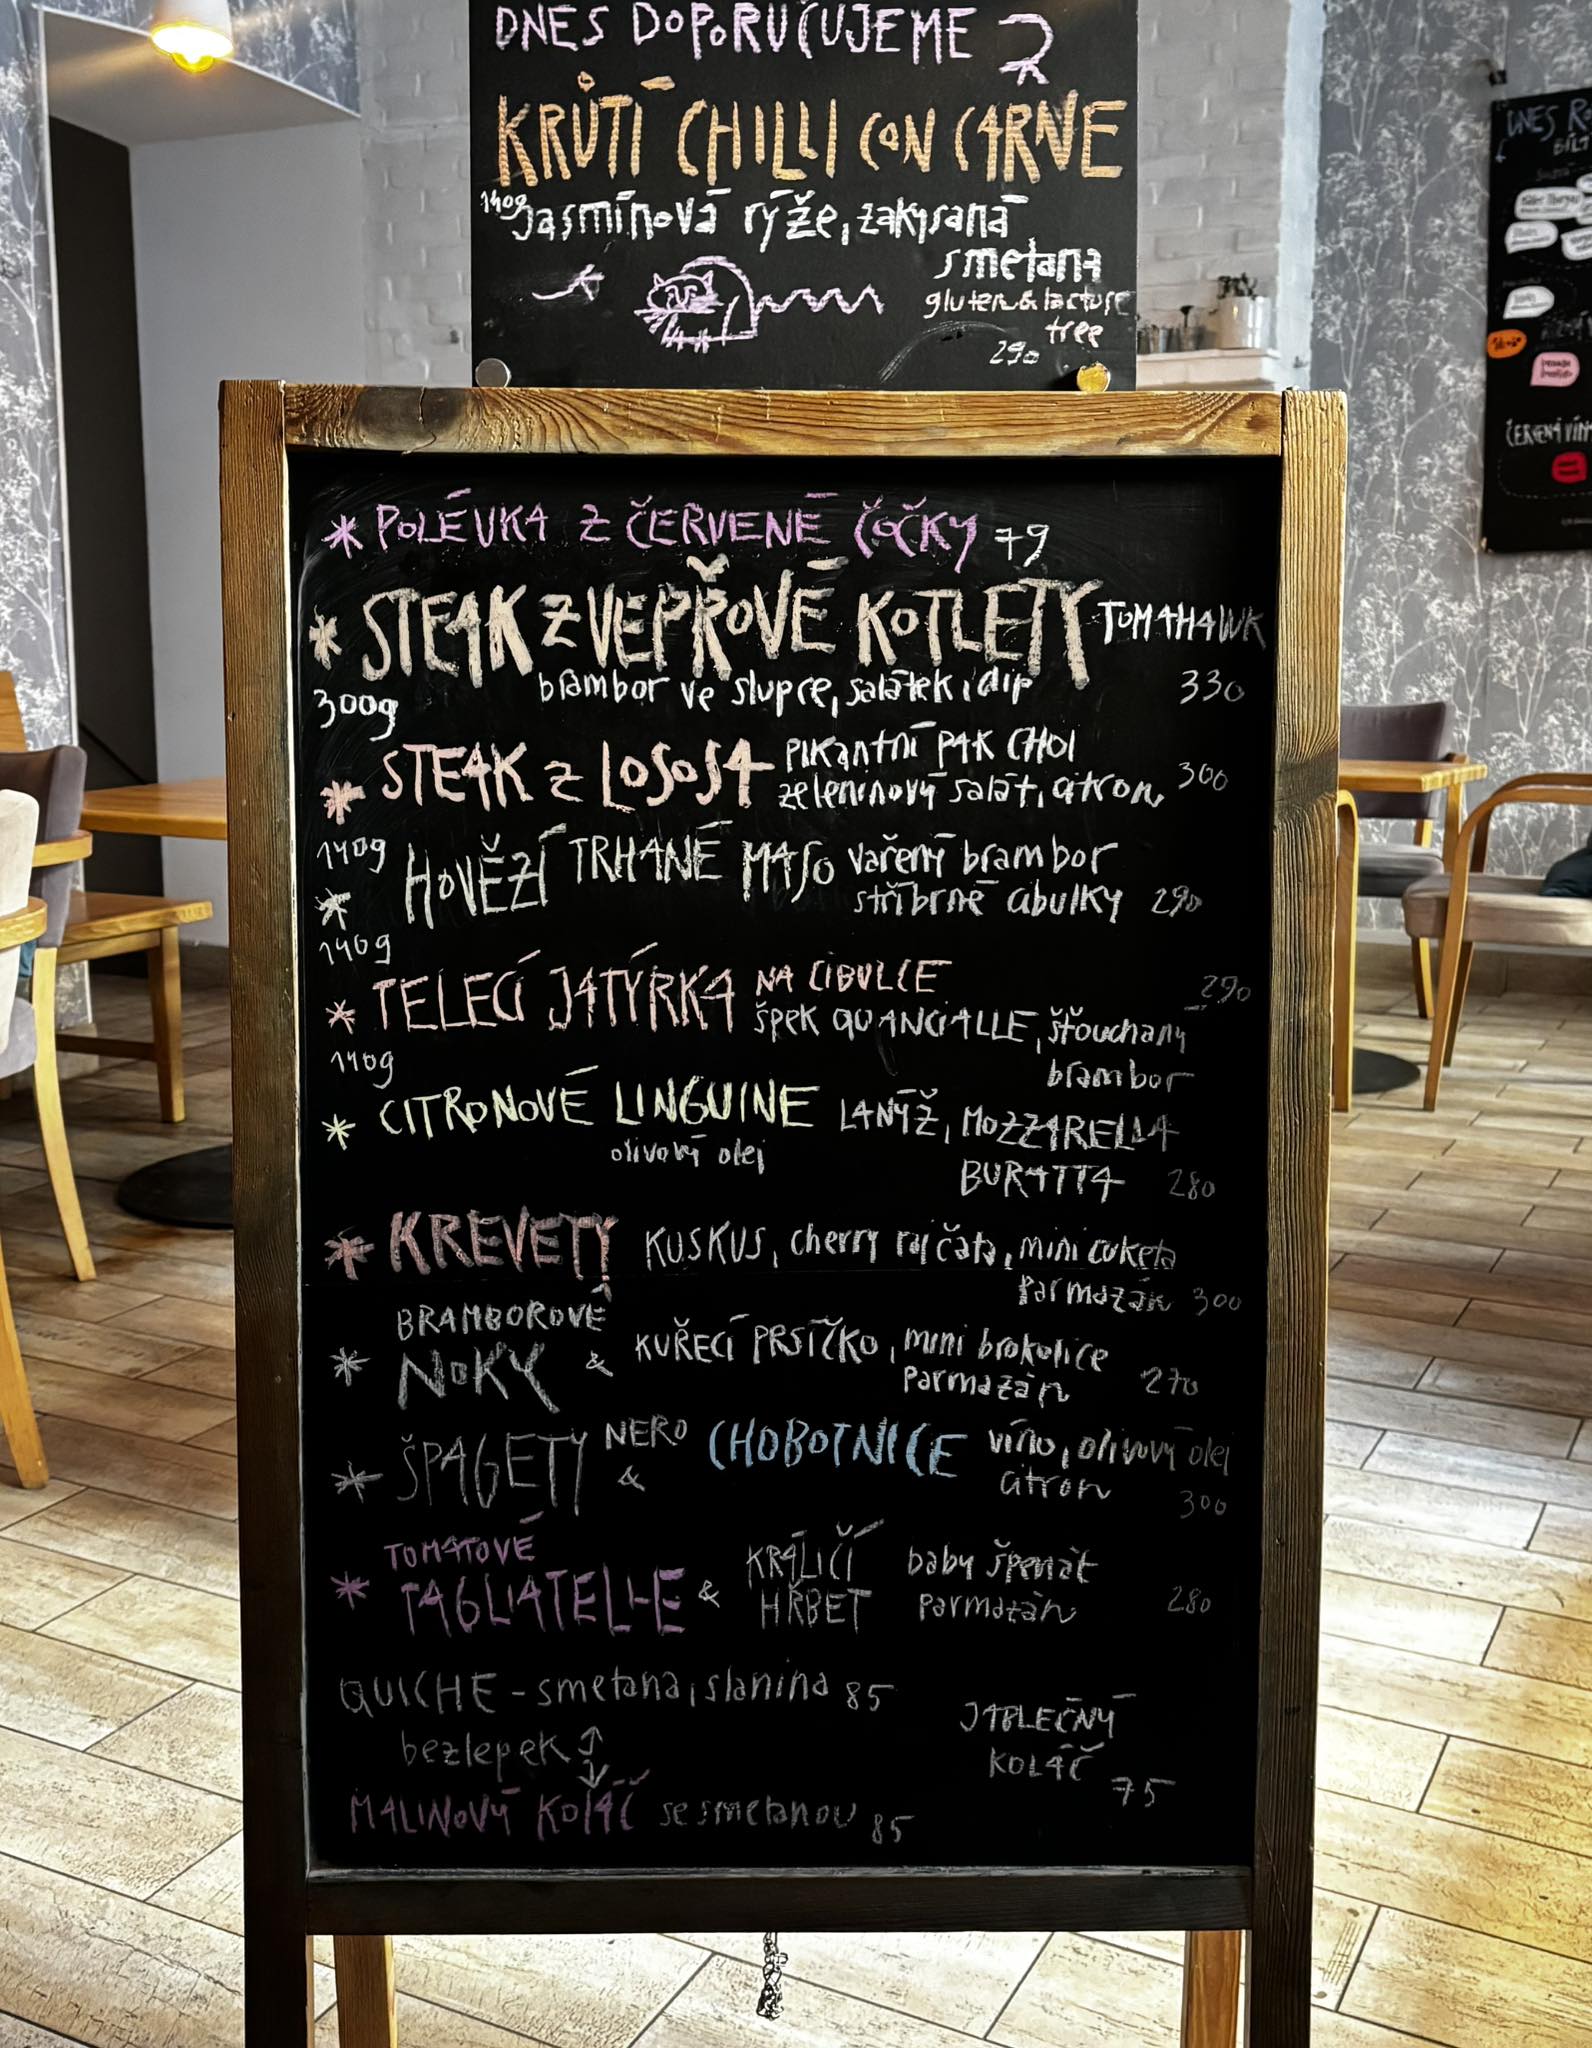 DNES DOPORUČUJEME
KRŮTÍ CHILLI CON CARNE
140g Jasmínová rýže, zakysaná
smetana
gluten & lactose
free
290
* POLÉVKA Z ČERVENÉ ČOČKY 79
* STEAK Z VEPŘOVÉ KOTLETY TOMAHAWK
300g brambor ve slupce, salátek, dip 330
* STEAK Z LOSOSA pikantní PAK CHOI
zeleninový salát, citron 300
140g
* HOVĚZÍ TRHANÉ MASO vařený brambor
stříbrné cibulky 290
140g
* TELECÍ JATÝRKA NA CIBULCE 290
špek QUANCIALLE, šťouchaný
brambor
140g
* CITRONOVÉ LINGUINE LANÝŽ, MOZZARELLA
olivový olej BURATTA 280
* KREVETY KUSKUS, cherry rajčata, mini cuketa
Parmazán 300
BRAMBOROVÉ
* NOKY & KUŘECÍ PRSÍČKO, mini brokolice
Parmazán 270
* ŠPAGETY NERO & CHOBOTNICE víno, olivový olej
citron 300
TOMATOVÉ
* TAGLIATELLE & KRÁLIČÍ HŘBET baby špenát
parmazán 280
QUICHE - smetana, slanina 85
bezlepek
MALINOVÝ KOLÁČ se smetanou 85
JABLEČNÝ
KOLÁČ
75
DNES
ČERVENÁ VÍN